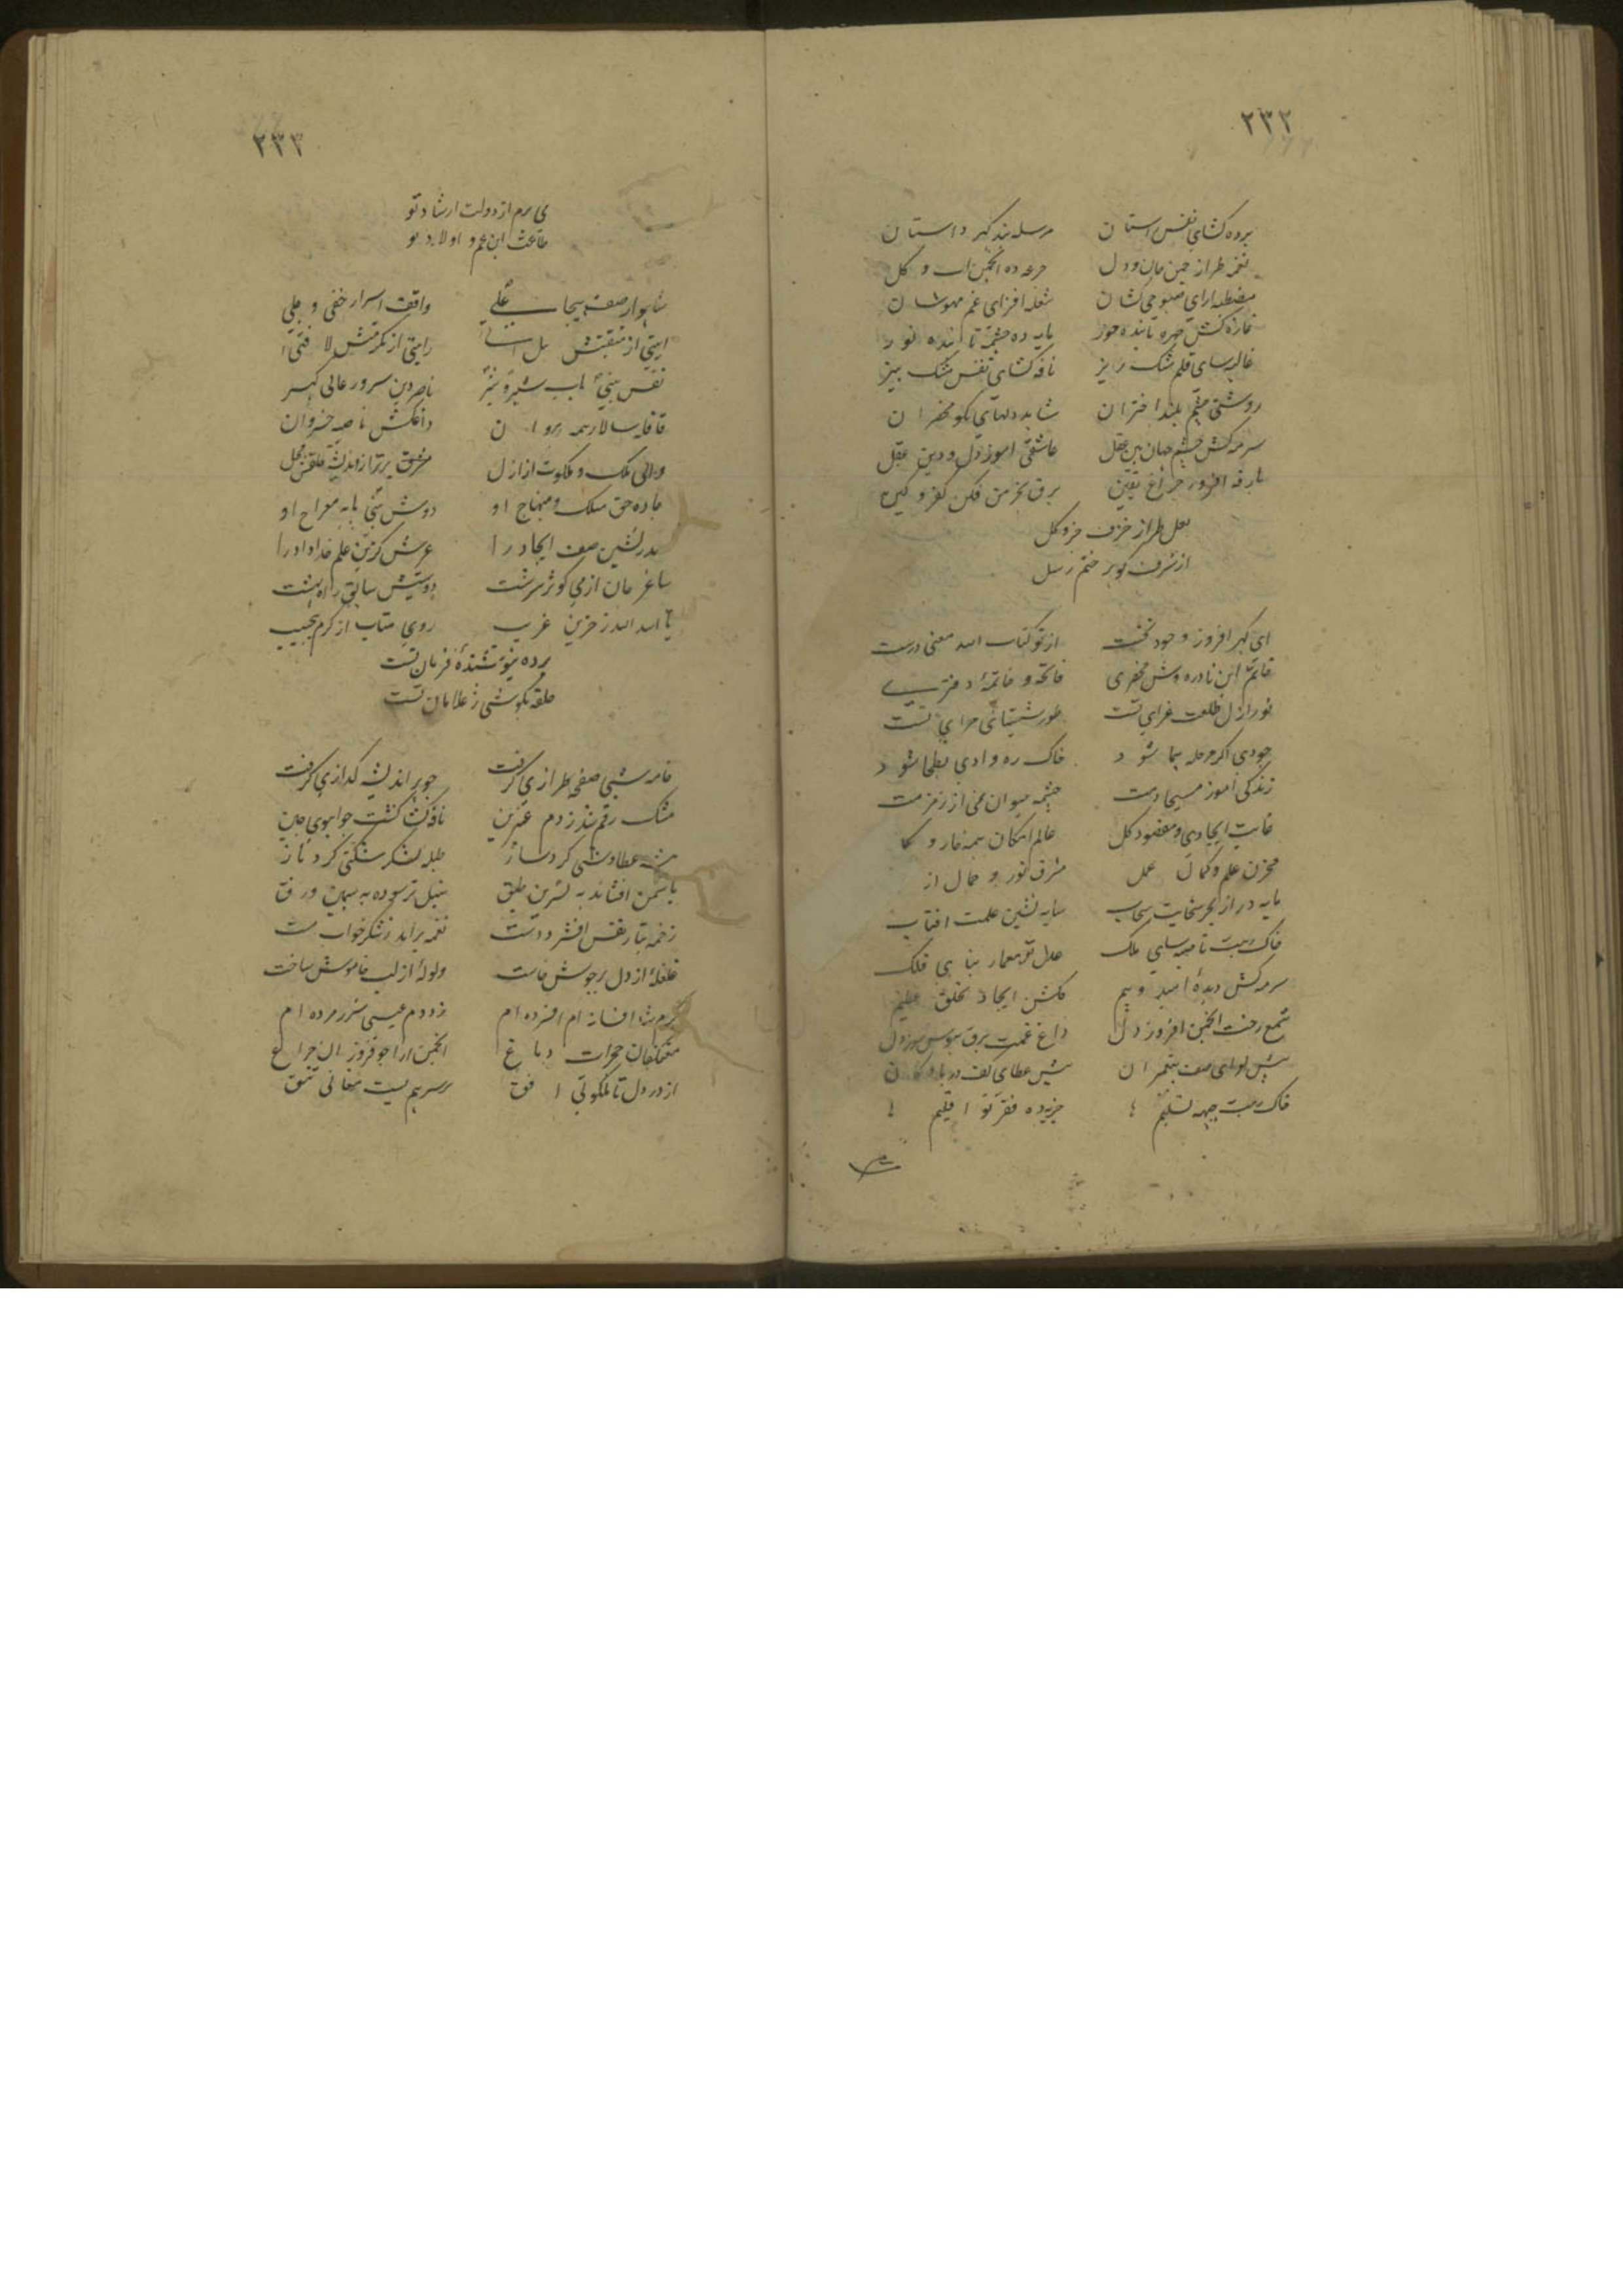 ۲۳۲
پرده کشای نفس راستان مرسله بند گهر داستان
نغمه طراز چمن جان و دل جرعه ده انجمن آب و گل
مصطبه ارای صبوحی کشان شعله افزای غم مهوشان
غازه کش چهره تابنده حور پایه ده چشمه
غالیه سای قلم مشک ریز نافه کشای نفس مشک بیز
روشنی چشم بلند اختران شاهد دلهای نکو محضران
سرمه کش چشم جهان بین عقل عاشقی اموز دل و دین عقل
بارقه افروز چراغ یقین برق بخرمن فکن کفر و کین
لعل طراز خزف جزو کل
از شرف گوهر ختم رسل
ای گهر افروز وجود نخست از تو کتاب الله معنی درست
خاتم این نادره وش محضری فاتحه و خاتمهٔ دفتری
نور ازل طلعت غرای تست طور شبستانی حرای تست
جودی اگر مرحله پیما شود خاک ره وادی بطحا شود
زندگی اموز مسیحا دمت چشمه حیوان نمی از زمزمت
غایت ایجادی و مقصود کل عالم امکان همه خار و
مخزن علم و کمال عمل مشرق نور و جمال از
مایه در از بحر سخایت سحاب سایه نشین علمت افتاب
خاک رهت ناصیه سای ملک عدل تو معمار بنای فلک
سرمه کش دیدهٔ امید و بیم گلشن ایجاد بخلق عظیم
شمع رخت انجمن افروز دل داغ غمت برق هوس سوز دل
پیش لوای صف پیغمبران پیش عطای کف دریا
خاک رهت جبهه تسلیم جزیه ده فقر تو اقلیم
۲۳۳
می برم از دولت ارشاد تو
طاعت ابن عم و اولاد تو
شاهوار صف هیجا علی واقف اسرار خفی و جلی
ایتی از منقبتش هل اتی رایتی از مکرمتش لا فتی
نفس نبی باب شبیر و شبر ناصر دین سرور عالی گهر
قافله سالار همه داغکش ناصیه خسروان
والی ملک و ملکوت از ازل مشرق برتر از اندیشه
جاده حق مسلک و منهاج او دوش نبی پایه معراج او
صدر نشین صف ایجاد را عرش گزین علم خداداد را
ساغر جان از می کوثر سرشت دوستیش سابق راه بهشت
یا اسد الله ز حزین غریب روی متاب از کرم
برده نیوشندهٔ فرمان تست
حلقه بگوشی ز غلامان تست
خامه شبی صفحه طرازی گرفت جوهر اندیشه گدازی گرفت
مشک رقم زد ز دم عنبرین نافه کش گشت چو اهوی چین
عطاوشی کرد ساز طبله لشکر شکنی کرد باز
یاسمن افشاند به نسرین طبق سنبل تر سوده به سیمین ورق
زخمه بتار نفس افشرد دست نغمه برامد ز شکر خواب مست
غلغله از دل بر جوش خاست ولوله از لب خاموش ساخت
گرم شد افسانه ام افسرده ام زد دم عیسی شرر مرده ام
معتکفان حجرات دماغ انجمن ارا چو فروزان چراغ
از در دل تا ملکوتی افق بر سر هم بست معانی تتق